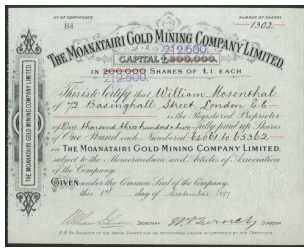 Nº OF CERTIFICATE
84
NUMBER OF SHARES
1302
THE MOANATAIRI GOLD MINING COMPANY LIMITED,
212,500.
CAPITAL £200,000.
IN 200,000 SHARES OF £1 EACH
212,500.
This is to Certify that William Mosenthal
of 72 Basinghall Street London E.C.
is the Registered Proprietor
of One thousand three hundred & two fully paid up Shares
of One Pound each Numbered 64061 to 65362
IN THE MOANATAIRI GOLD MINING COMPANY LIMITED.
subject to the Memorandum and Articles of Association
of the Company.
GIVEN under the Common Seal of the Company,
this 1st day of September 1897
SECRETARY
DIRECTOR
THE MOANATAIRI GOLD MINING COMPANY, LIMITED.